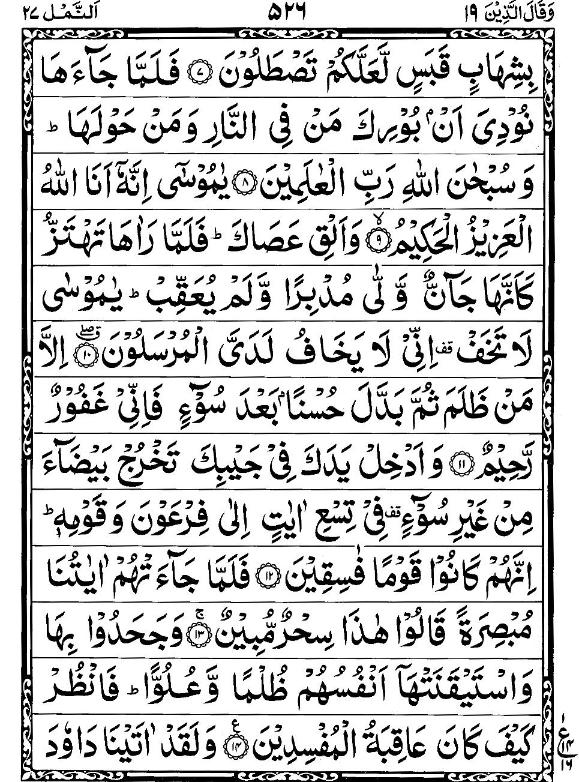 وَقَالَ الَّذِيْنَ ١٩ ۵۲۶ اَلنَّمْل ٢٧
بِشِهَابٍ قَبَسٍ لَّعَلَّكُمْ تَصْطَلُوْنَ ۷ فَلَمَّا جَآءَهَا
نُوْدِىَ اَنْۢ بُوْرِكَ مَنْ فِى النَّارِ وَمَنْ حَوْلَهَا ؕ
وَ سُبْحٰنَ اللّٰهِ رَبِّ الْعٰلَمِيْنَ ۸ يٰمُوْسٰٓى اِنَّهٗٓ اَنَا اللّٰهُ
الْعَزِيْزُ الْحَكِيْمُ ۙ ۹ وَاَلْقِ عَصَاكَ ؕ فَلَمَّا رَاٰهَا تَهْتَزُّ
كَاَنَّهَا جَآنٌّ وَّلّٰى مُدْبِرًا وَّلَمْ يُعَقِّبْ ؕ يٰمُوْسٰى
لَا تَخَفْ قف اِنِّىْ لَا يَخَافُ لَدَىَّ الْمُرْسَلُوْنَ ۱۰ اِلَّا
مَنْ ظَلَمَ ثُمَّ بَدَّلَ حُسْنًۢا بَعْدَ سُوْٓءٍ فَاِنِّىْ غَفُوْرٌ
رَّحِيْمٌ ۱۱ وَاَدْخِلْ يَدَكَ فِىْ جَيْبِكَ تَخْرُجْ بَيْضَآءَ
مِنْ غَيْرِ سُوْٓءٍ قف فِىْ تِسْعِ اٰيٰتٍ اِلٰى فِرْعَوْنَ وَقَوْمِهٖ ؕ
اِنَّهُمْ كَانُوْا قَوْمًا فٰسِقِيْنَ ۱۲ فَلَمَّا جَآءَتْهُمْ اٰيٰتُنَا
مُبْصِرَةً قَالُوْا هٰذَا سِحْرٌ مُّبِيْنٌ ۚ ۱۳ وَجَحَدُوْا بِهَا
وَاسْتَيْقَنَتْهَاۤ اَنْفُسُهُمْ ظُلْمًا وَّعُلُوًّا ؕ فَانْظُرْ
كَيْفَ كَانَ عَاقِبَةُ الْمُفْسِدِيْنَ ع ۱۴ وَلَقَدْ اٰتَيْنَا دَاوٗدَ
١ ع ۱۴ ۱۶